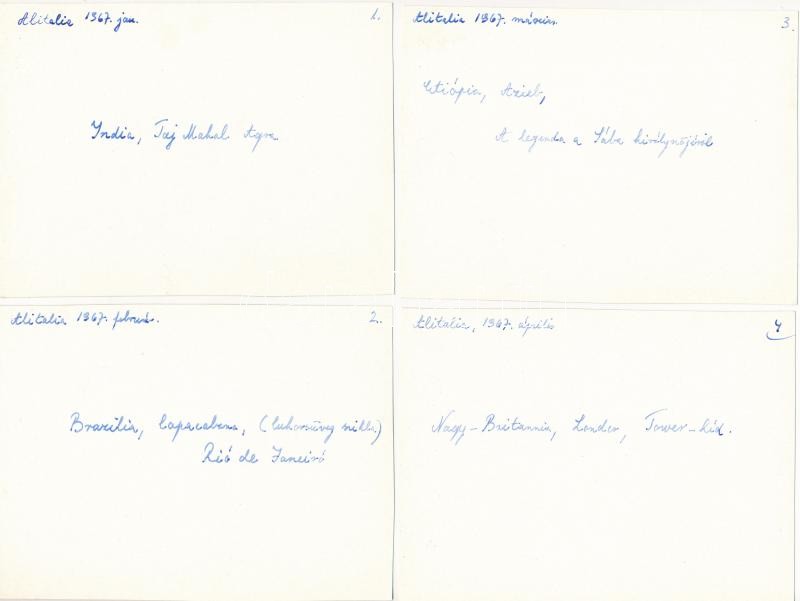 Alitalia 1967. jan.
1.
India, Taj Mahal Agra
Alitalia 1967. február.
2.
Brazília, Copacabana, (Cukorsüveg szikla)
Rió de Janeiró
Alitalia 1967. március.
3.
Etiópia,
A legenda a Sába királynőjéről
Alitalia, 1967. április
4
Nagy-Britannia, London, Tower-híd.